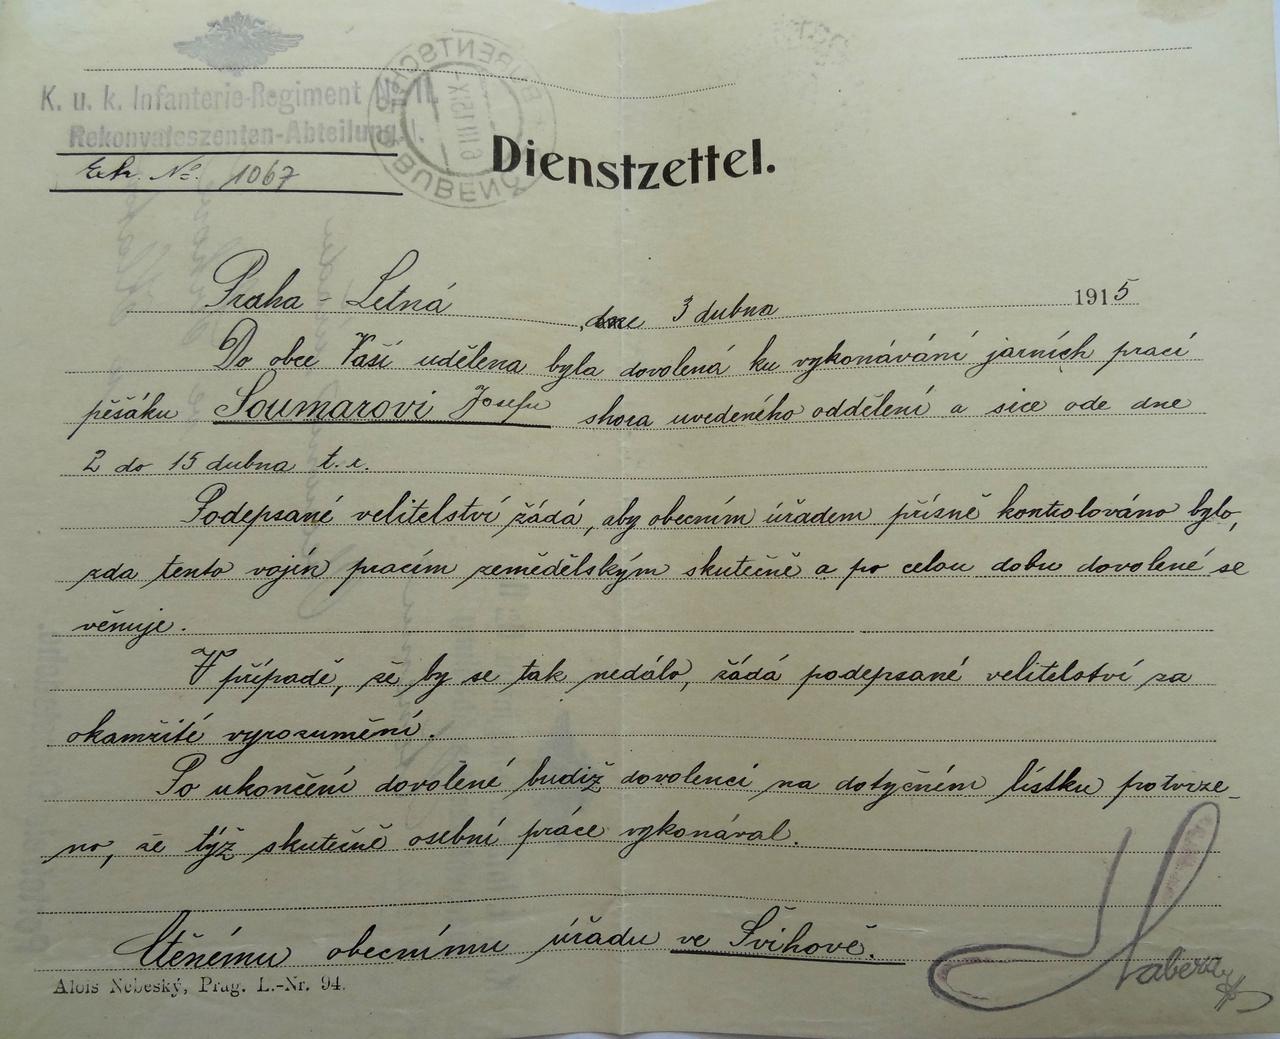 K. u. k. Infanterie-Regiment No 11.
Rekonvaleszenten-Abteilung I.
BUBENTSCH
BUBENČ
Exh. No. 1067
Dienstzettel.
Praha - Letná, dne 3 dubna 1915
Do obce Vaší udělena byla dovolená ku vykonávání jarních prací
pěšáku Soumarovi Josefu shora uvedeného oddělení a sice ode dne
2 do 15 dubna t. r.
Podepsané velitelství žádá, aby obecním úřadem přísně kontrolováno bylo,
zda tento vojín pracím zemědělským skutečně a po celou dobu dovolené se
věnuje.
V případě, že by se tak nedálo, žádá podepsané velitelství za
okamžité vyrozumění.
Po ukončení dovolené budiž dovolenci na dotyčném lístku potvrze-
no, že týž skutečně osobní práce vykonával.
Ctěnému obecnímu úřadu ve Švihově.
Alois Nebeský, Prag. L.-Nr. 94.
Habera